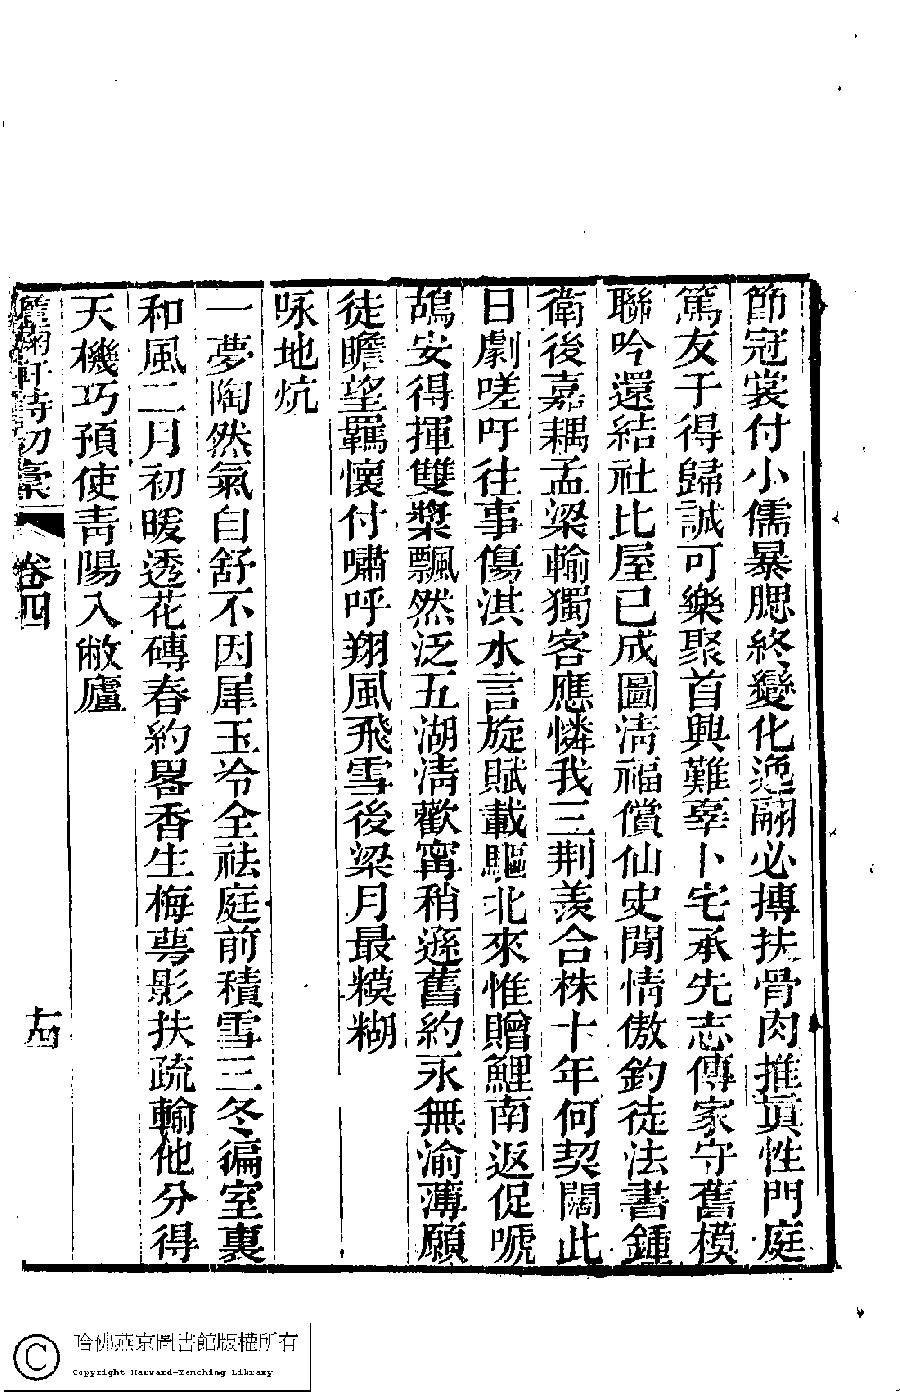 節冠裳付小儒暴腮終變化逸翮必摶扶骨肉推眞性門庭
篤友于得歸誠可樂聚首興難辜卜宅承先志傳家守舊模
聯吟還結社比屋已成圖清福償仙史閒情傲釣徒法書鍾
衛後嘉耦孟梁輸獨客應憐我三荆羨合株十年何契闊此
日劇嗟吁往事傷淇水言旋賦載驅北來惟贈鯉南返促唬
鴣安得揮雙槳飄然泛五湖清歡甯稍遜舊約永無渝薄願
徒瞻望羈懷付嘯呼翔風飛雪後梁月最糢糊
咏地炕
一夢陶然氣自舒不因犀玉冷全祛庭前積雪三冬徧室裏
和風二月初暖透花磚春約畧香生梅蕚影扶疏輸他分得
天機巧預使青陽入敝廬
軒詩初稾
卷四
十四
哈佛燕京圖書館版權所有
Copyright Harvard-Yenching Library